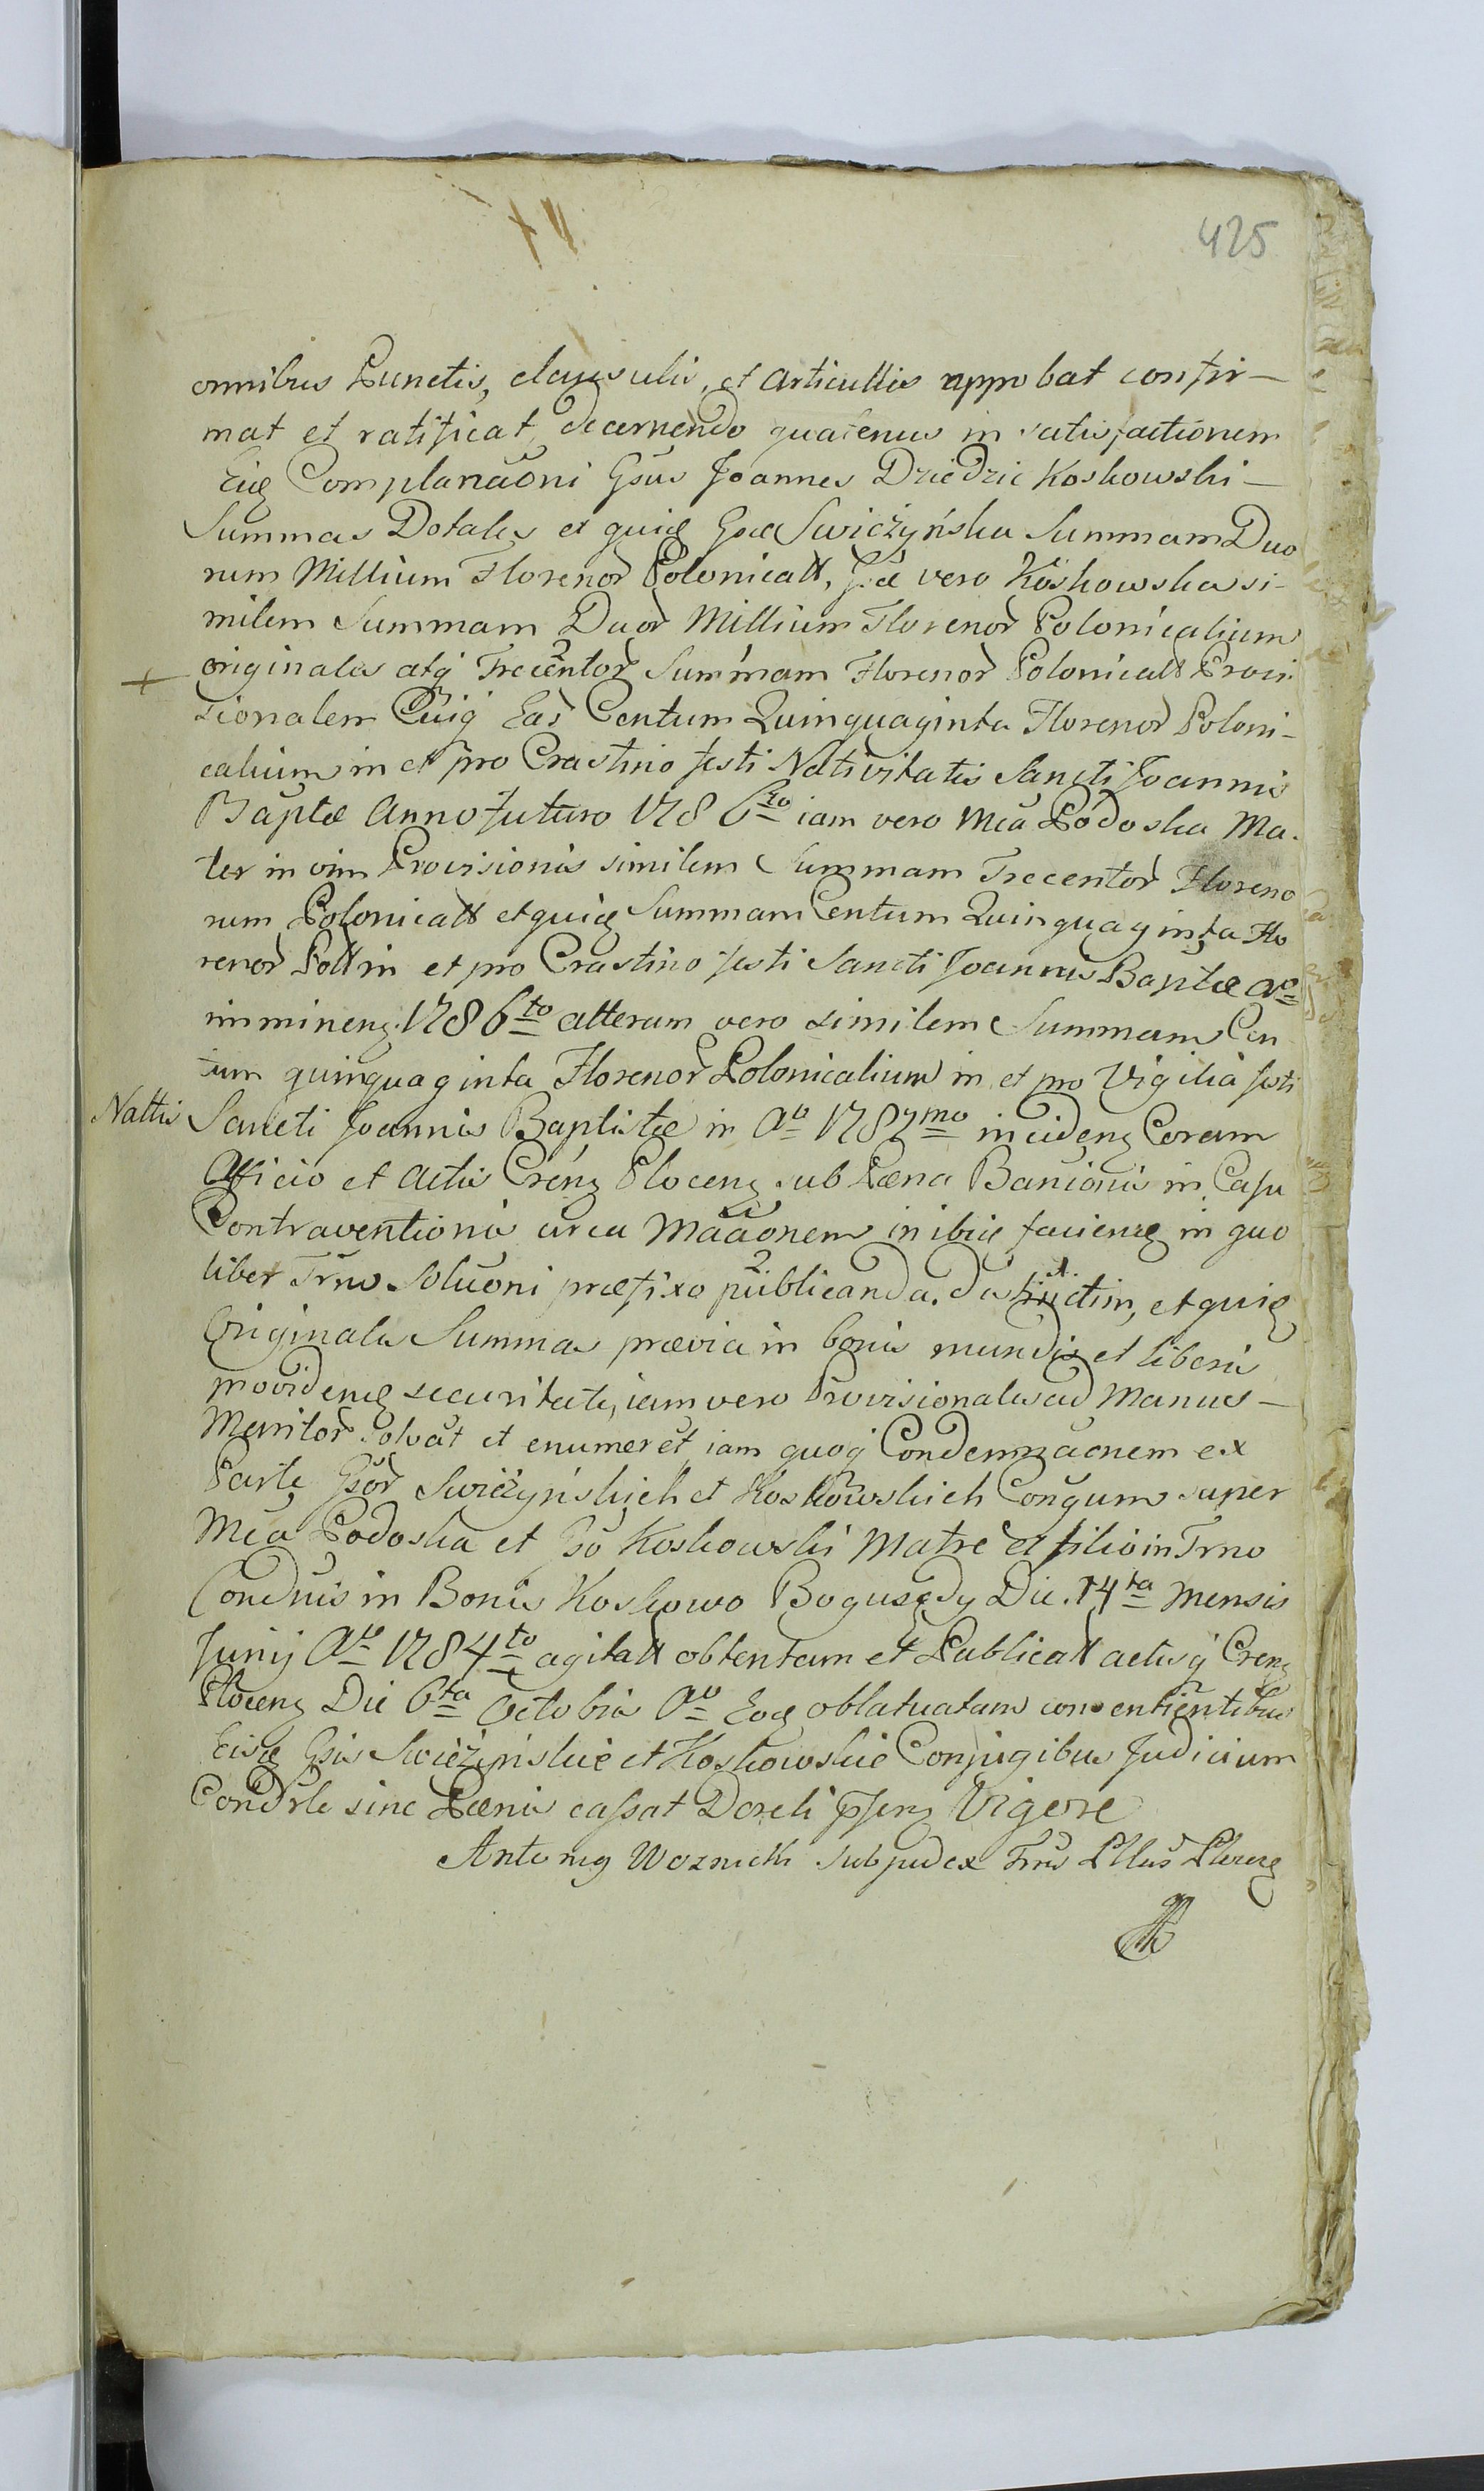 425
omnibus Punctis, clausulis, et articullis approbat confir-
mat et ratificat decernendo quatenus in satisfactionem
Eiq Complanaoni Gsus Joannes Dziedzic Koskowski-
Summas Dotales et quiq Gsa Swieżyńska Summam Duo
rum Millium Florenor Polonicall, Gsa vero Koskowska si-
milem Summam Duor Millium Florenor Polonicalium
+ originales atq Trecentor Summam Florenor Polonicall Provi
sionalem Cuiq Ear Centum Quinquaginta Florenor Poloni-
calium in et pro Crastino festi Nativitatis Sancti Joannis
Baptae Anno futuro 1786to iam vero Mca Podoska Ma-
ter in vim Provisionis similem Summam Trecentor Floreno
rum Polonicall et quiq Summam Centum Quinquaginta Flo
renor Poll in et pro Crastino festi Sancti Joannis Baptae Ao
imminenz 1786to alteram vero similem Summam Cen
tum quinquaginta Florenor Polonicalium in et pro Vigilia festi
Nattis Sancti Joannis Baptistae in Ao 1787mo incidenz Coram
Officio et Actis Crenz Plocenz sub Paena Banionis in Casu
Contraventionis circa Maaonem inibiq faciena in quo
libet Trno Soluoni praefixo publicanda. Distinctim, et quiq
Originales Summas praevia in bonis mundis et liberis
providenq securitate, iam vero Provisionales ad Manus-
Maritor solvat et enumeret iam quoq Condemnaonem ex
Parte Gsor Swieżyńskich et Koskowskich Conjgum super
Mca Podoska et Gso Koskowski Matre et filio in Trno
Condnis in Bonis Koskowo Bogusędy Die. 14ta Mensis
Junij Ao 1784to agitall obtentam et Publicall actisq Crenz
Plocenz Die 6ta Octobris Ao Eoq oblatuatam consentientibus
Eisq Gsis Swieżyńskie et Koskowskie Conjugibus Judicium
Condrle sine Paenis cassat Dcreti pssenz Vigore
Antonig Woznicki Subjudex Trris Pllus Plocenz